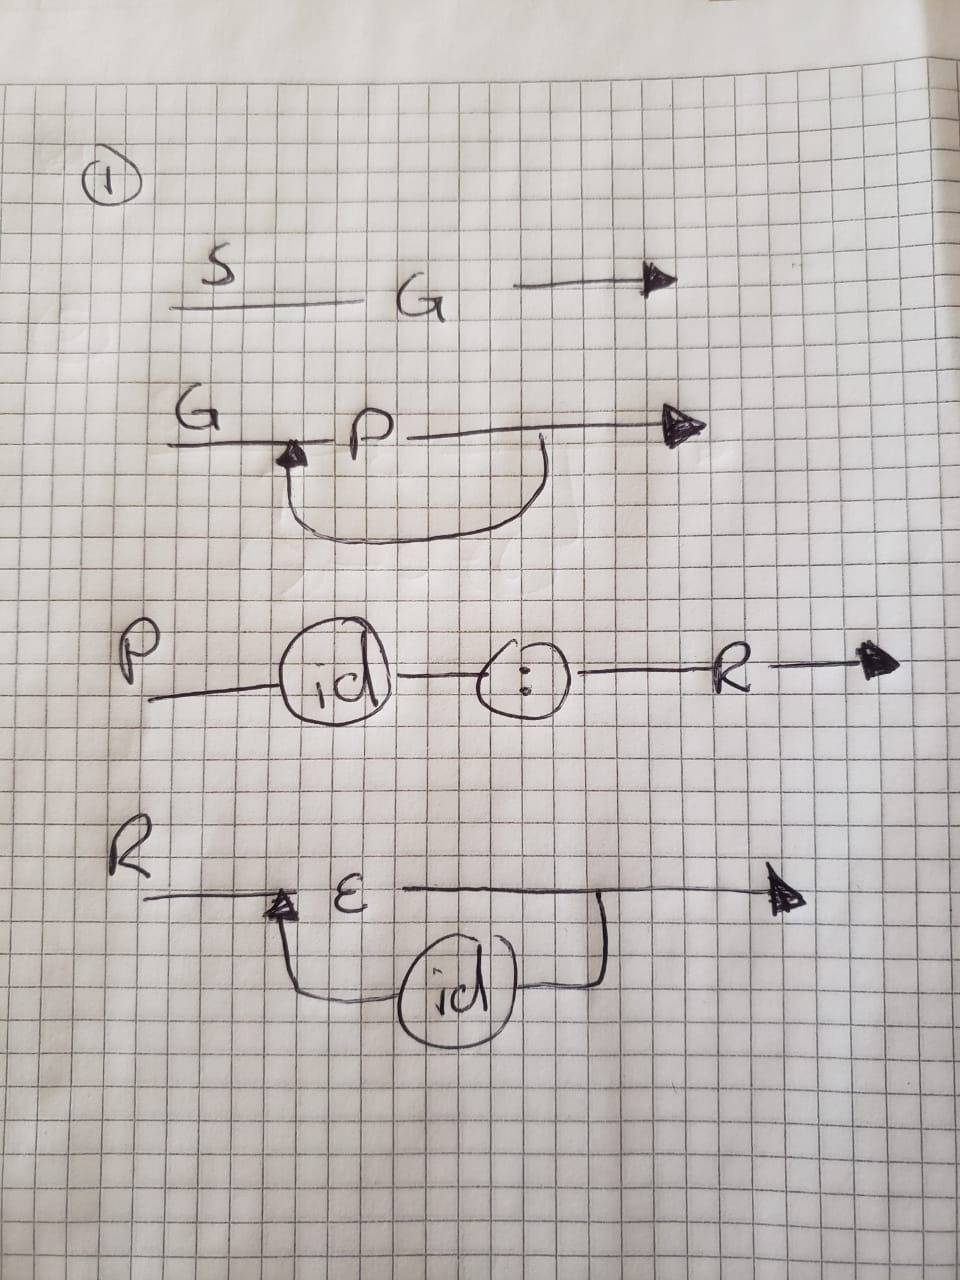 1
S G
G P
P id : R
R ε
id